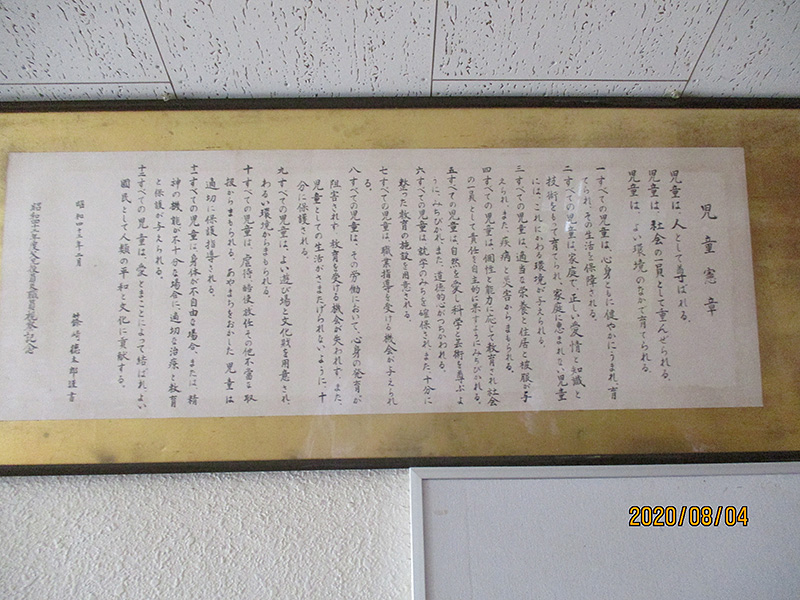 児童憲章
児童は、人として尊ばれる。
児童は、社会の一員として重んぜられる。
児童は、よい環境のなかで育てられる。
一 すべての児童は、心身ともに健やかにうまれ、育
てられ、その生活を保障される。
二 すべての児童は、家庭で、正しい愛情と知識と
技術をもって育てられ、家庭に恵まれない児童
には、これにかわる環境が与えられる。
三 すべての児童は、適当な栄養と住居と被服が与
えられ、また、疾病と災害からまもられる。
四 すべての児童は、個性と能力に応じて教育され、社会
の一員として責任を自主的に果すようにみちびかれる。
五 すべての児童は、自然を愛し、科学と芸術を尊ぶよ
うに、みちびかれ、また、道徳的心がつちかわれる。
六 すべての児童は、就学のみちを確保され、また、十分に
整った教育の施設を用意される。
七 すべての児童は、職業指導を受ける機会が与えられ
る。
八 すべての児童は、その労働において、心身の発育が
阻害されず、教育を受ける機会が失われず、また、
児童としての生活がさまたげられないように、十
分に保護される。
九 すべての児童は、よい遊び場と文化財を用意され、
わるい環境からまもられる。
十 すべての児童は、虐待、酷使、放任その他不当な取
扱からまもられる。あやまちをおかした児童は
適切に保護指導される。
十一 すべての児童は、身体が不自由な場合、または精
神の機能が不十分な場合に、適切な治療と教育
と保護が与えられる。
十二 すべての児童は、愛とまことによって結ばれ、よい
国民として人類の平和と文化に貢献する。
昭和四十三年二月
篠崎 徳太郎 謹書
昭和四十二年度文化教育及職員視察記念
2020/08/04